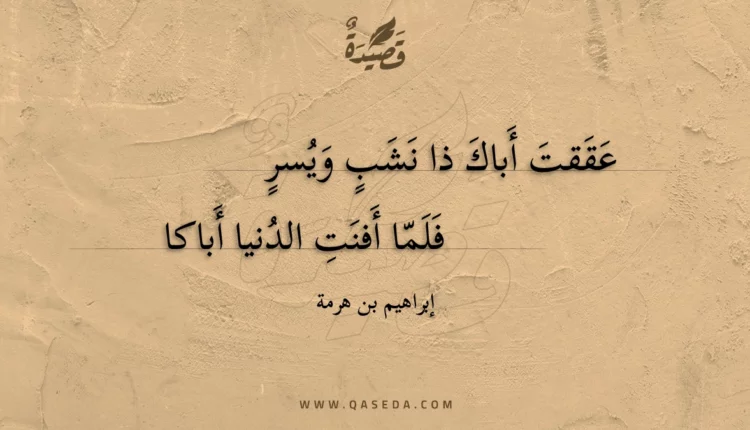 قَصِيدَةٌ
عَقَقتَ أَباكَ ذا نَشَبٍ وَيُسرٍ
فَلَمّا أَفنَتِ الدُنيا أَباكا
إبراهيم بن هرمة
WWW.QASEDA.COM